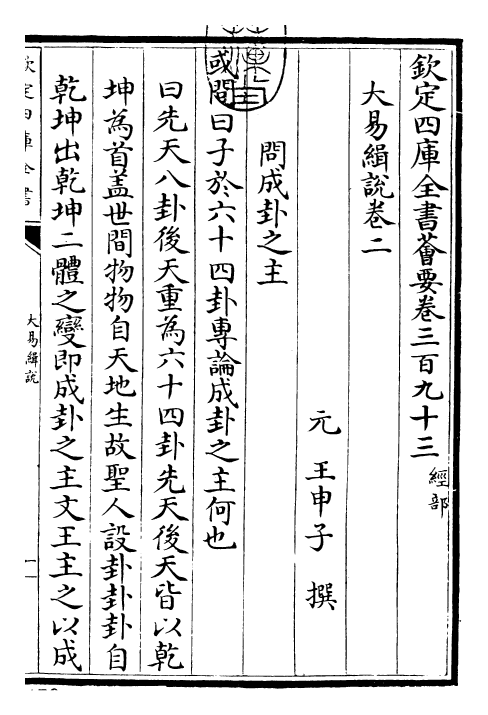 欽定四庫全書薈要卷三百九十三 經部
大易緝說卷二
元 王申子 撰
問成卦之主
或問曰子於六十四卦專論成卦之主何也
曰先天八卦後天重為六十四卦先天後天皆以乾
坤為首盖世間物物自天地生故聖人設卦卦卦自
乾坤出乾坤二體之變即成卦之主文王主之以成
欽定四庫全書
大易緝說
一